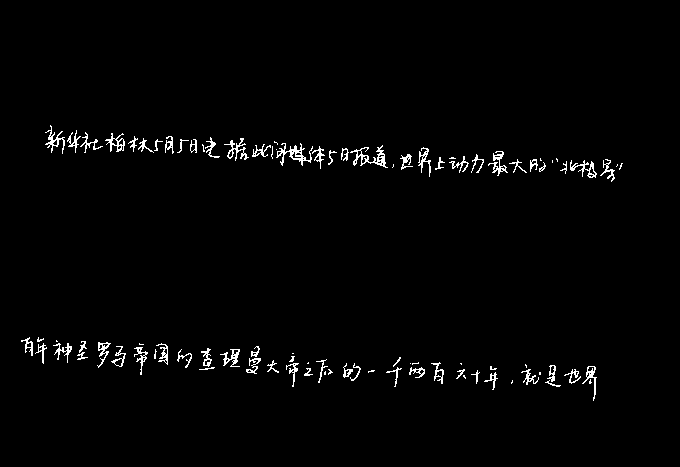 新华社柏林5月5日电据此间媒体5日报道,世界上动力最大的"北极号"
百年神圣罗马帝国的查理曼大帝之后的一千两百六十年,就是世界